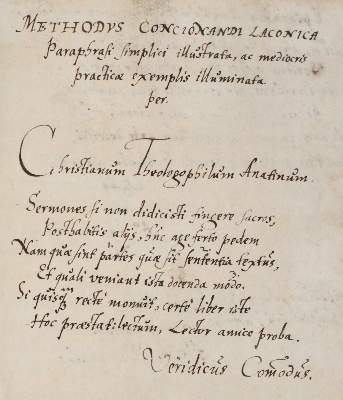 METHODVS CONCIONANDI LACONICA
Paraphrasi simplici illustrata, ac mediocris
practicæ exemplis illuminata
per.
Christianum Theologophilum Anatinum.
Sermones si non didicisti fingere sacros,
Posthabitis alijs, hûc age ferto pedem
Nam quæ sint partes quæ sit sententia textus,
Et quali veniant ista docenda modo.
Si quisq́ rectè monuit, certè liber iste
Hoc præstat: lectum, Lector amice proba.
Veridicus Com̄odus.